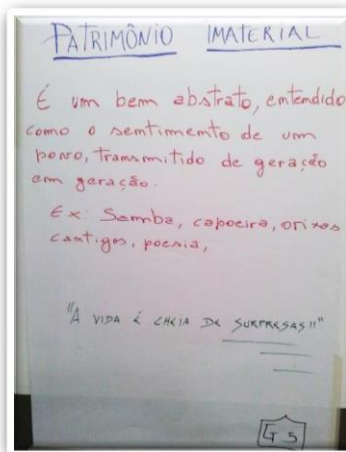 PATRIMÔNIO IMATERIAL
É um bem abstrato, entendido
como o sentimento de um
povo, transmitido de geração
em geração.
Ex: Samba, capoeira, orixas
cantigos, poesia,
"A VIDA É CHEIA DE SURPRESAS!!"
G5